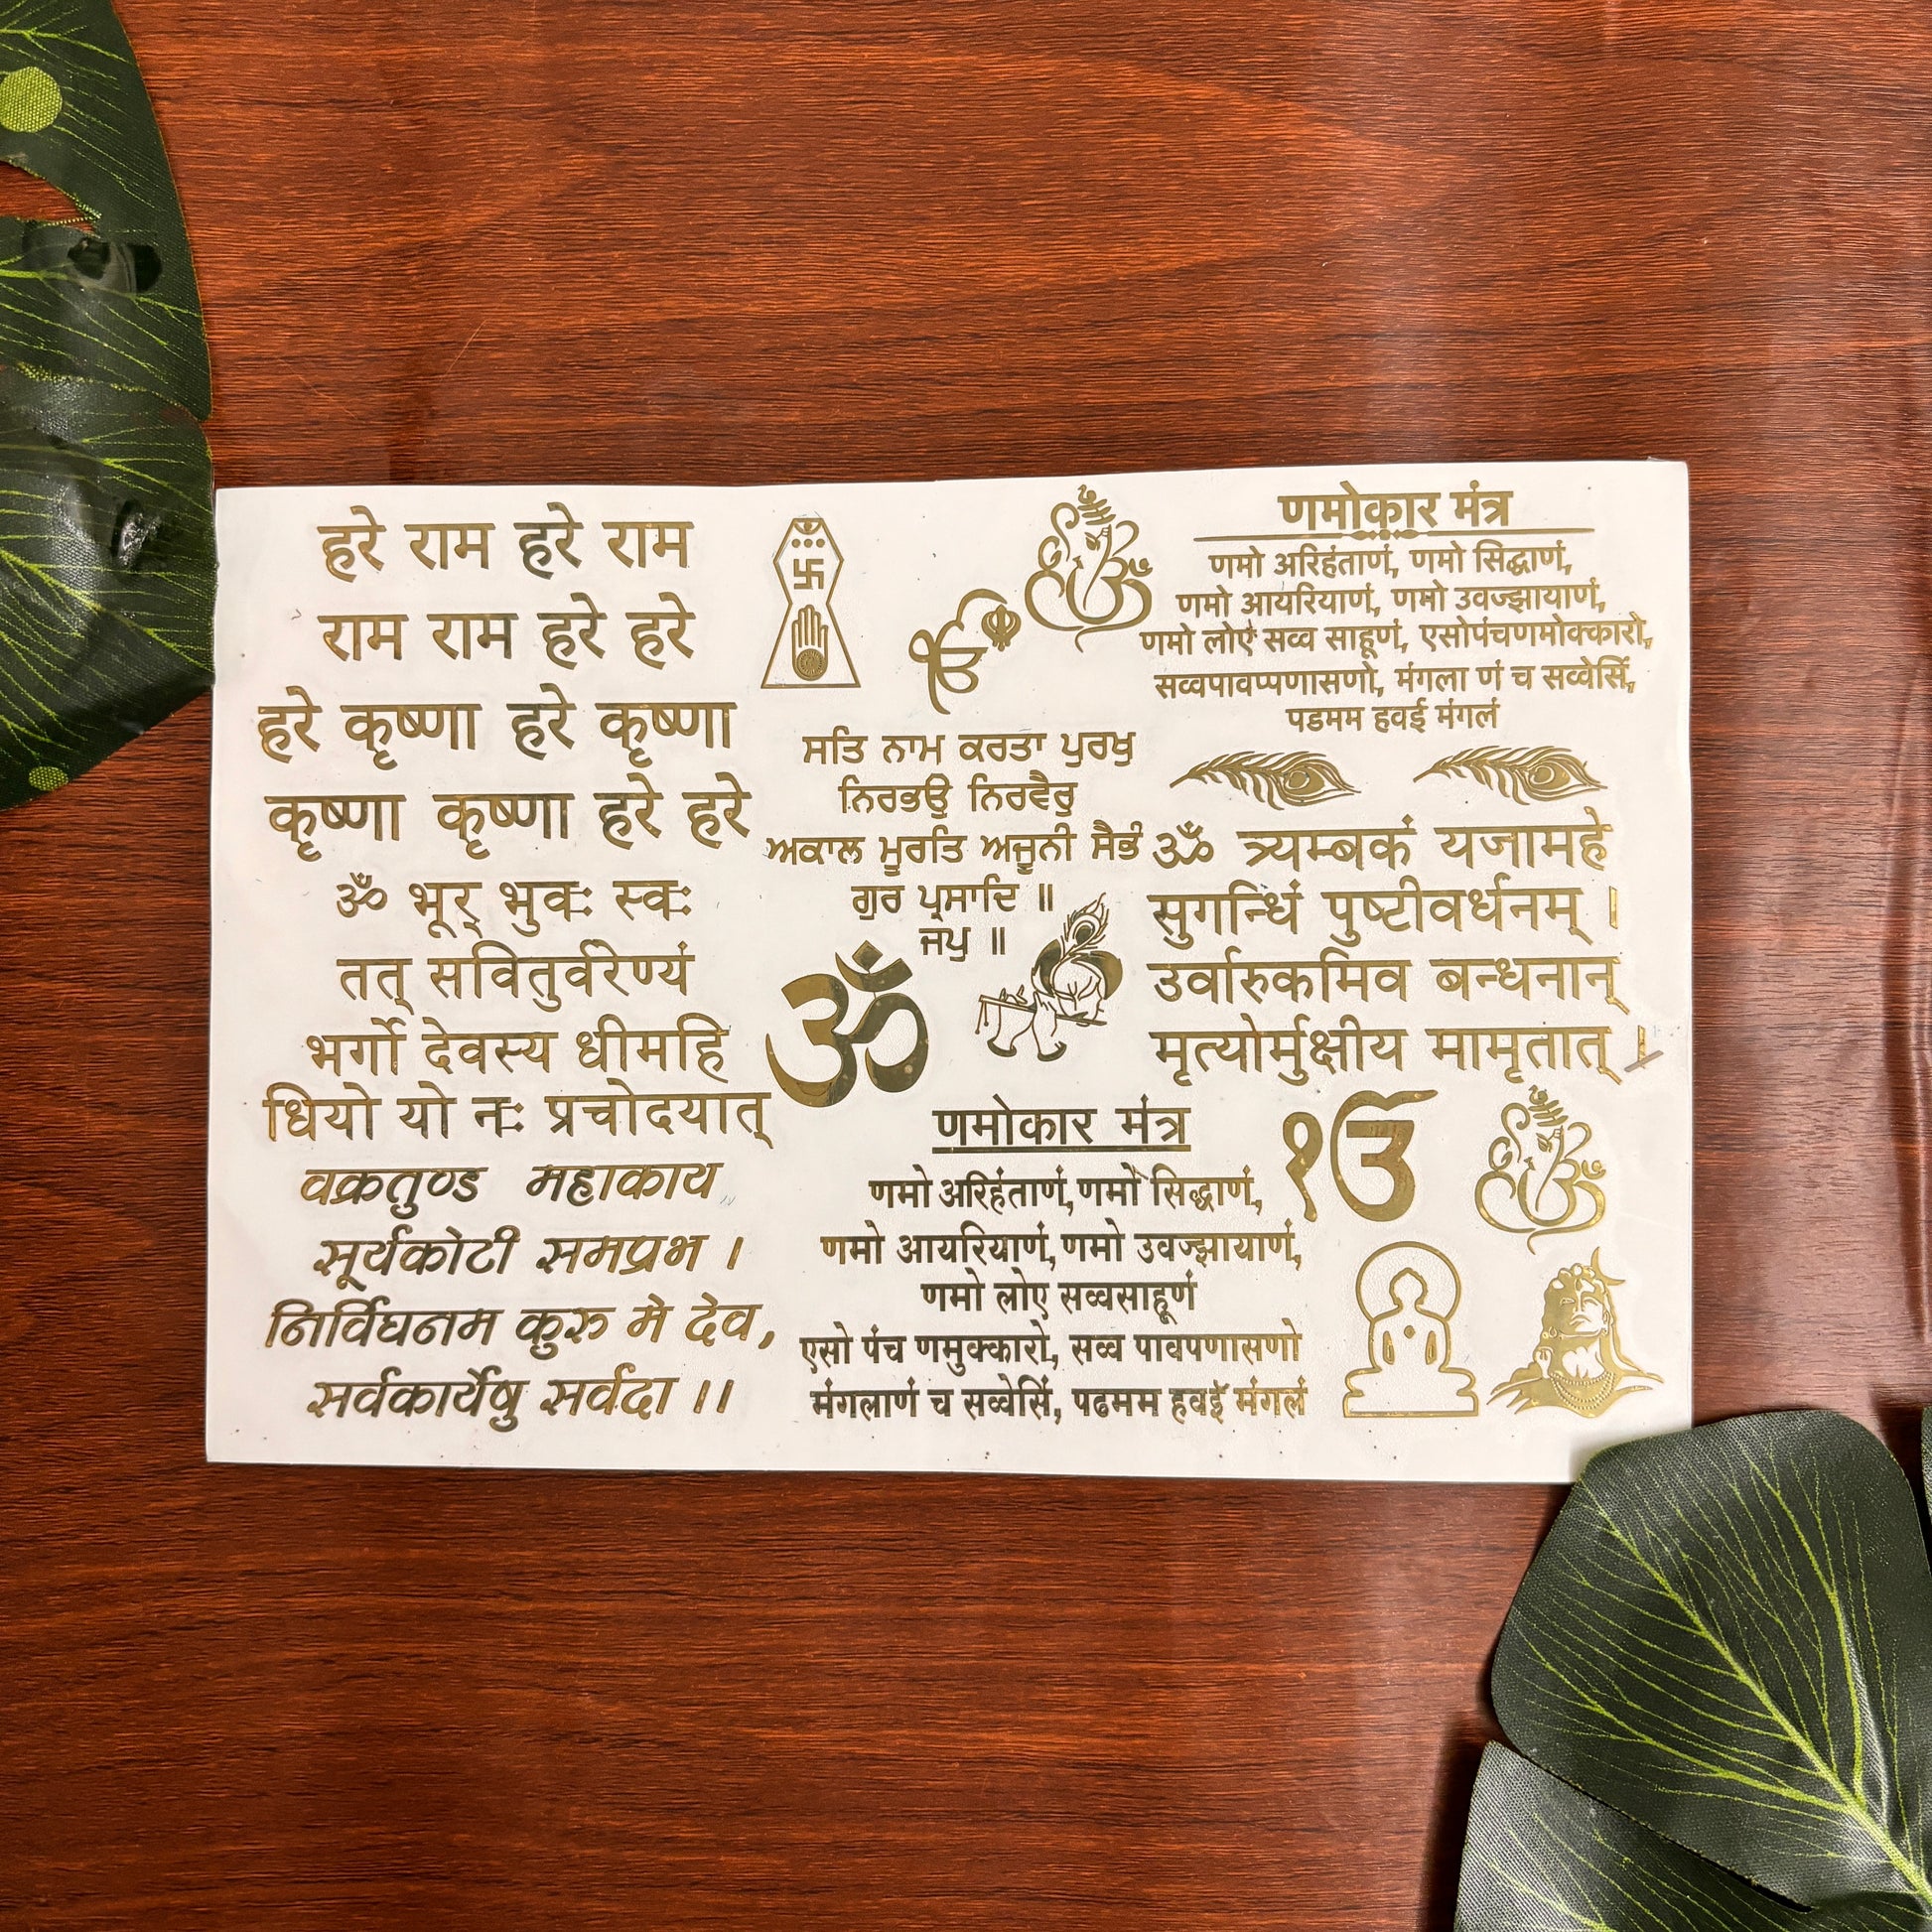 हरे राम हरे राम
राम राम हरे हरे
हरे कृष्णा हरे कृष्णा
कृष्णा कृष्णा हरे हरे
ॐ भूर् भुवः स्वः
तत् सवितुर्वरेण्यं
भर्गो देवस्य धीमहि
धियो यो नः प्रचोदयात्
वक्रतुण्ड महाकाय
सूर्यकोटी समप्रभ ।
निर्विघनम कुरु मे देव,
सर्वकार्येषु सर्वदा ।।
ੴ
ਸਤਿ ਨਾਮ ਕਰਤਾ ਪੁਰਖੁ
ਨਿਰਭਉ ਨਿਰਵੈਰੁ
ਅਕਾਲ ਮੂਰਤਿ ਅਜੂਨੀ ਸੈਭੰ
ਗੁਰ ਪ੍ਰਸਾਦਿ ॥
ਜਪੁ ॥
ॐ
णमोकार मंत्र
णमो अरिहंताणं, णमो सिद्धाणं,
णमो आयरियाणं, णमो उवज्झायाणं,
णमो लोए सव्वसाहूणं
एसो पंच णमुक्कारो, सव्व पावपणासणो
मंगलाणं च सव्वेसिं, पढमम हवई मंगलं
णमोकार मंत्र
णमो अरिहंताणं, णमो सिद्धाणं,
णमो आयरियाणं, णमो उवज्झायाणं,
णमो लोएं सव्व साहूणं, एसोपंचणमोक्कारो,
सव्वपावप्पणासणो, मंगला णं च सव्वेसिं,
पडमम हवई मंगलं
ॐ त्र्यम्बकं यजामहे
सुगन्धिं पुष्टीवर्धनम् ।
उर्वारुकमिव बन्धनान्
मृत्योर्मुक्षीय मामृतात् ।
ੴ